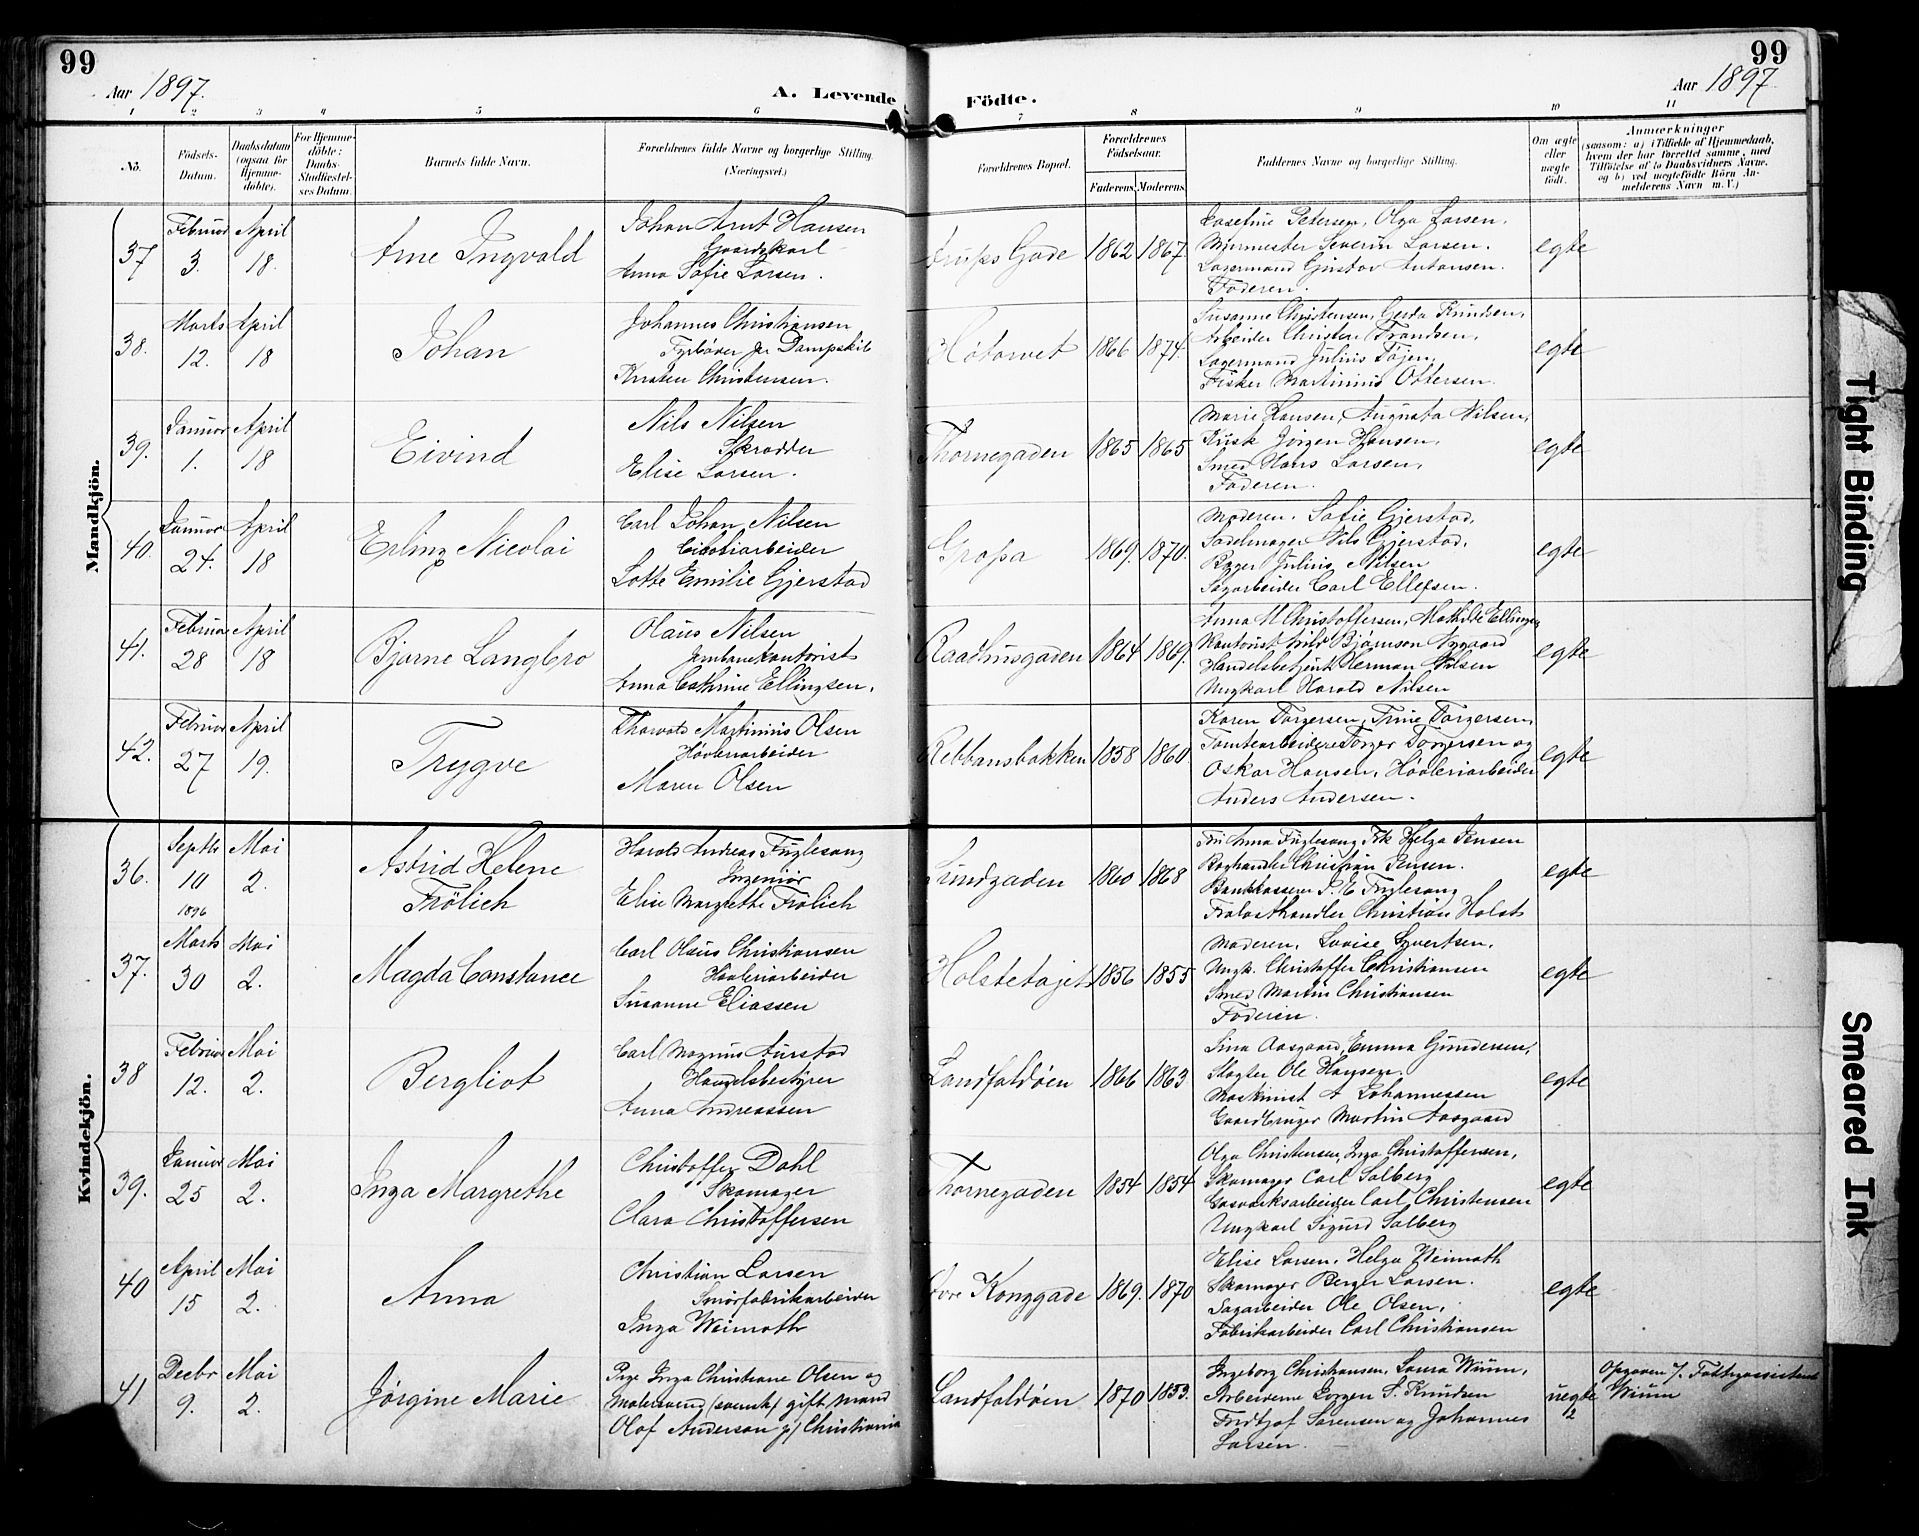 99
99
Aar 1897.
A. Levende Födte.
Aar 1897.
1 2 3 4 5 6 7 8 9 10 11
No.
Födsels-Datum.
Daabsdatum (ogsaa for Hjemme-döbte).
For Hjemme-döbte: Daabs-Stadfæstel-ses Datum.
Barnets fulde Navn.
Forældrenes fulde Navne og borgerlige Stilling. (Næringsvei.)
Forældrenes Bopæl.
Forældrenes Födselsaar.
Faderens. Moderens.
Faddernes Navne og borgerlige Stilling.
Om ægte eller uægte födt.
Anmærkninger
(saasom: a) i Tilfælde af Hjemmedaab, hvem der har forrettet samme, med Tilföielse af to Daabsvidners Navne, og b) ved uegtefödte Börn An-melderens Navn m. V.)
Mandkjön.
37 Februar 3. April 18. Arne Ingvald
Johan Arnt Hansen
Gaardskarl
Anna Sofie Larsen.
Arups Gade 1862 1867.
Josefine Petersen, Olga Larsen,
Severin Larsen.
Lagermand Gustav Antonsen.
Faderen.
egte
38. Marts 12. April 18 Johan
Johannes Christiansen
Fyrbøder paa Dampskib
Kirsten Christensen.
Høtorvet 1866 1874.
Susanne Christensen, Gerda Knudsen,
Arbeider Christian Frandsen,
Lagermand Julius Tøjen,
Fisker Martinius Ottersen.
egte
39. Januar 1. April 18 Eivind
Nils Nilsen
Skrædder
Elise Larsen.
Thornegaden 1865 1865
Marie Hansen, Augusta Nilsen,
Kusk Jörgen Hansen,
Smed Hans Larsen,
Faderen.
egte
40. Januar 24. April 18 Erling Nicolai
Carl Johan Nilsen
Lotte Emilie Gjerstad
Gropa 1869. 1870.
Moderen, Sofie Gjerstad,
Sadelmager Nils Gjerstad,
Bager Julius Nilsen
Sagarbeider Carl Ellefsen.
egte
41. Februar 28 April 18 Bjarne Langbro
Olaus Nilsen
Jernbanekontorist
Anna Cathrine Ellingsen.
Raadhusgaden 1864 1869.
Anna M Christoffersen, Mathilde Ellingsen
Kontorist Bjørnson Nygaard
Handelsbetjent Herman Nilsen
Ungkarl Harald Nilsen
egte
42. Februar 27 April 19. Trygve
Thorvald Martinius Olsen
Høvleriarbeider
Maren Olsen
Rebbansbakken 1858 1860
Karen Torgersen, Trine Torgersen,
Tomtearbeidere Torger Torgersen og
Oskar Hansen, Høvleriarbeider
Anders Andersen.
egte
Kvindekjön.
36. Septbr 10 1896 Mai 2. Astrid Helene
Frölich
Harald Andreas Fuglesang
Ingeniör
Elise Margrethe Frölich
Lundgaden 1860 1868
Fru Anna Fuglesang, Frk Helga Jensen
Boghandler Christian Jensen.
Bankkasserer P. E Fuglesang
Trælasthandler Christian Holst
egte
37. Marts 30 Mai 2. Magda Constance
Carl Olaus Christiansen
Høvleriarbeider
Susanne Eliassen
Holstetøjet 1856 1855
Moderen, Lovise Syvertsen,
Ungk. Christoffer Christiansen
Smed Martin Christiansen
Faderen.
egte
38 Februar 12. Mai 2. Bergliot
Carl Magnus Aurstad
Handelsbestyrer
Anna Andreassen
Landfaldøen 1866 1863.
Lina Aasgaard, Emma Gundersen,
Slagter Ole Hansen.
Maskinist A Johannessen
Gaardbruger Martin Aasgaard
egte
39. Januar 25 Mai 2. Inga Margrethe
Christoffer Dahl
Skomager
Clara Christoffersen
Thornegaden 1854 1854
Olga Christensen, Inga Christoffersen,
Skomager Carl Solberg
Gasværksarbeider Carl Christensen
Ungkarl Sigurd Solberg
egte
40 April 15 Mai 2. Anna
Christian Larsen
Smörfabrikarbeider
Inga Weimoth
Øvre Konggade 1869. 1870
Elise Larsen, Helga Weimoth
Skomager Berger Larsen.
Sagarbeider Ole Olsen,
Fabrikarbeider Carl Christiansen
egte
41 Decbr 9. Mai 2. Jørgine Marie
Pige Inga Christiane Olsen og
Malersvend (svensk) gift Mand
Olof Anderson Christiania
Landfaldøen 1870 1853.
Ingeborg Christiansen, Laura Wium,
Arbeiderne Jørgen S. Knudsen
Fridtjof Sørensen og Johannes
Larsen.
uegte
2
Opgaven v/ Fattigassistent
Wium
Tight Binding
Smeared Ink